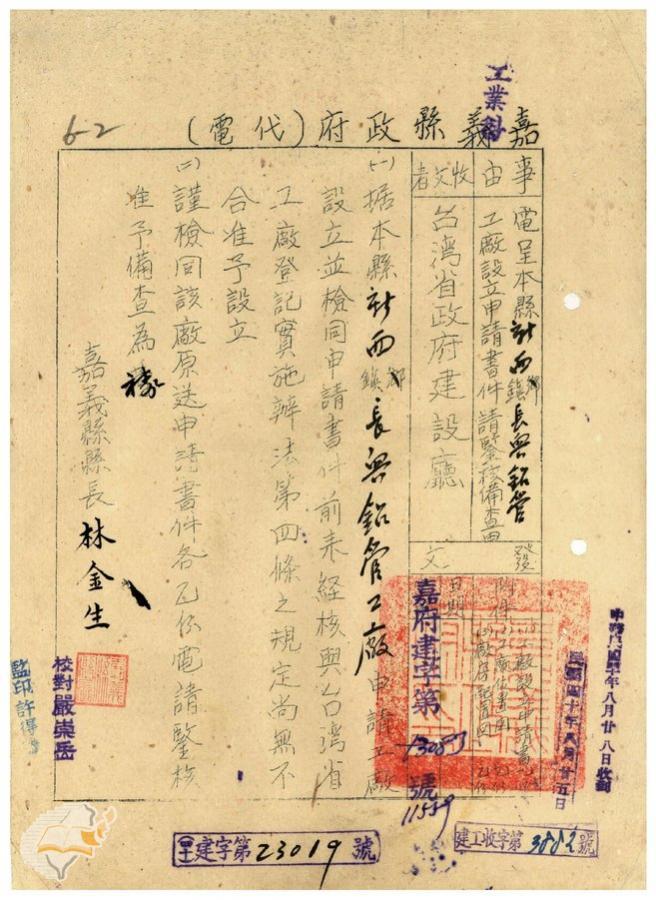 工業科
嘉義縣政府(代電)
6-2
事由
電呈本縣新西鄉鎮長興鋁管
工廠設立申請書件請鑒核備查由
收文者
台湾省政府建設廳
發文
日期
附件
工廠設立申請書
工廠位置圖
嘉府建字第
號
11559
民國四十年八月廿五日
年八月廿八日收到
㈠据本縣新西鄉鎮長興鋁管工廠申請工廠
設立並檢同申請書件前来経核與台湾省
工廠登記實施辦法第四條之規定尚無不
合准予設立
㈡謹檢同該廠原送申請書件各乙份電請鑒核
准予備查為禱
嘉義縣縣長林金生
校對嚴崇岳
監印許得
建字第23019號
建工收字第3882號